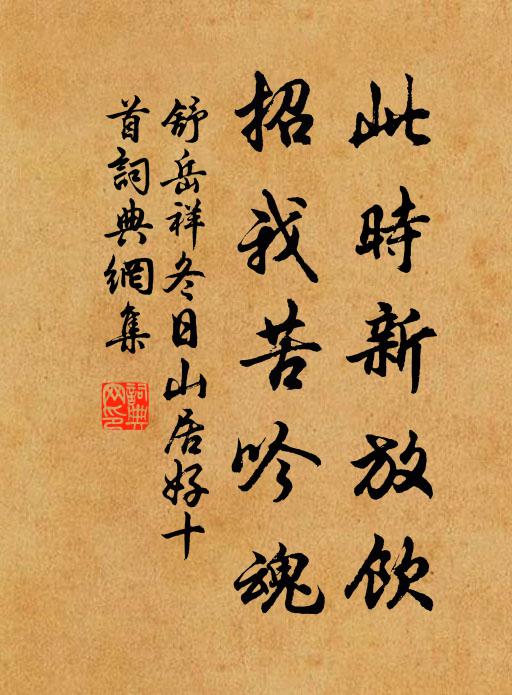 此時新放飲
招我苦吟魂
舒岳祥冬日山居好十
首詞典網集
詞典
网印